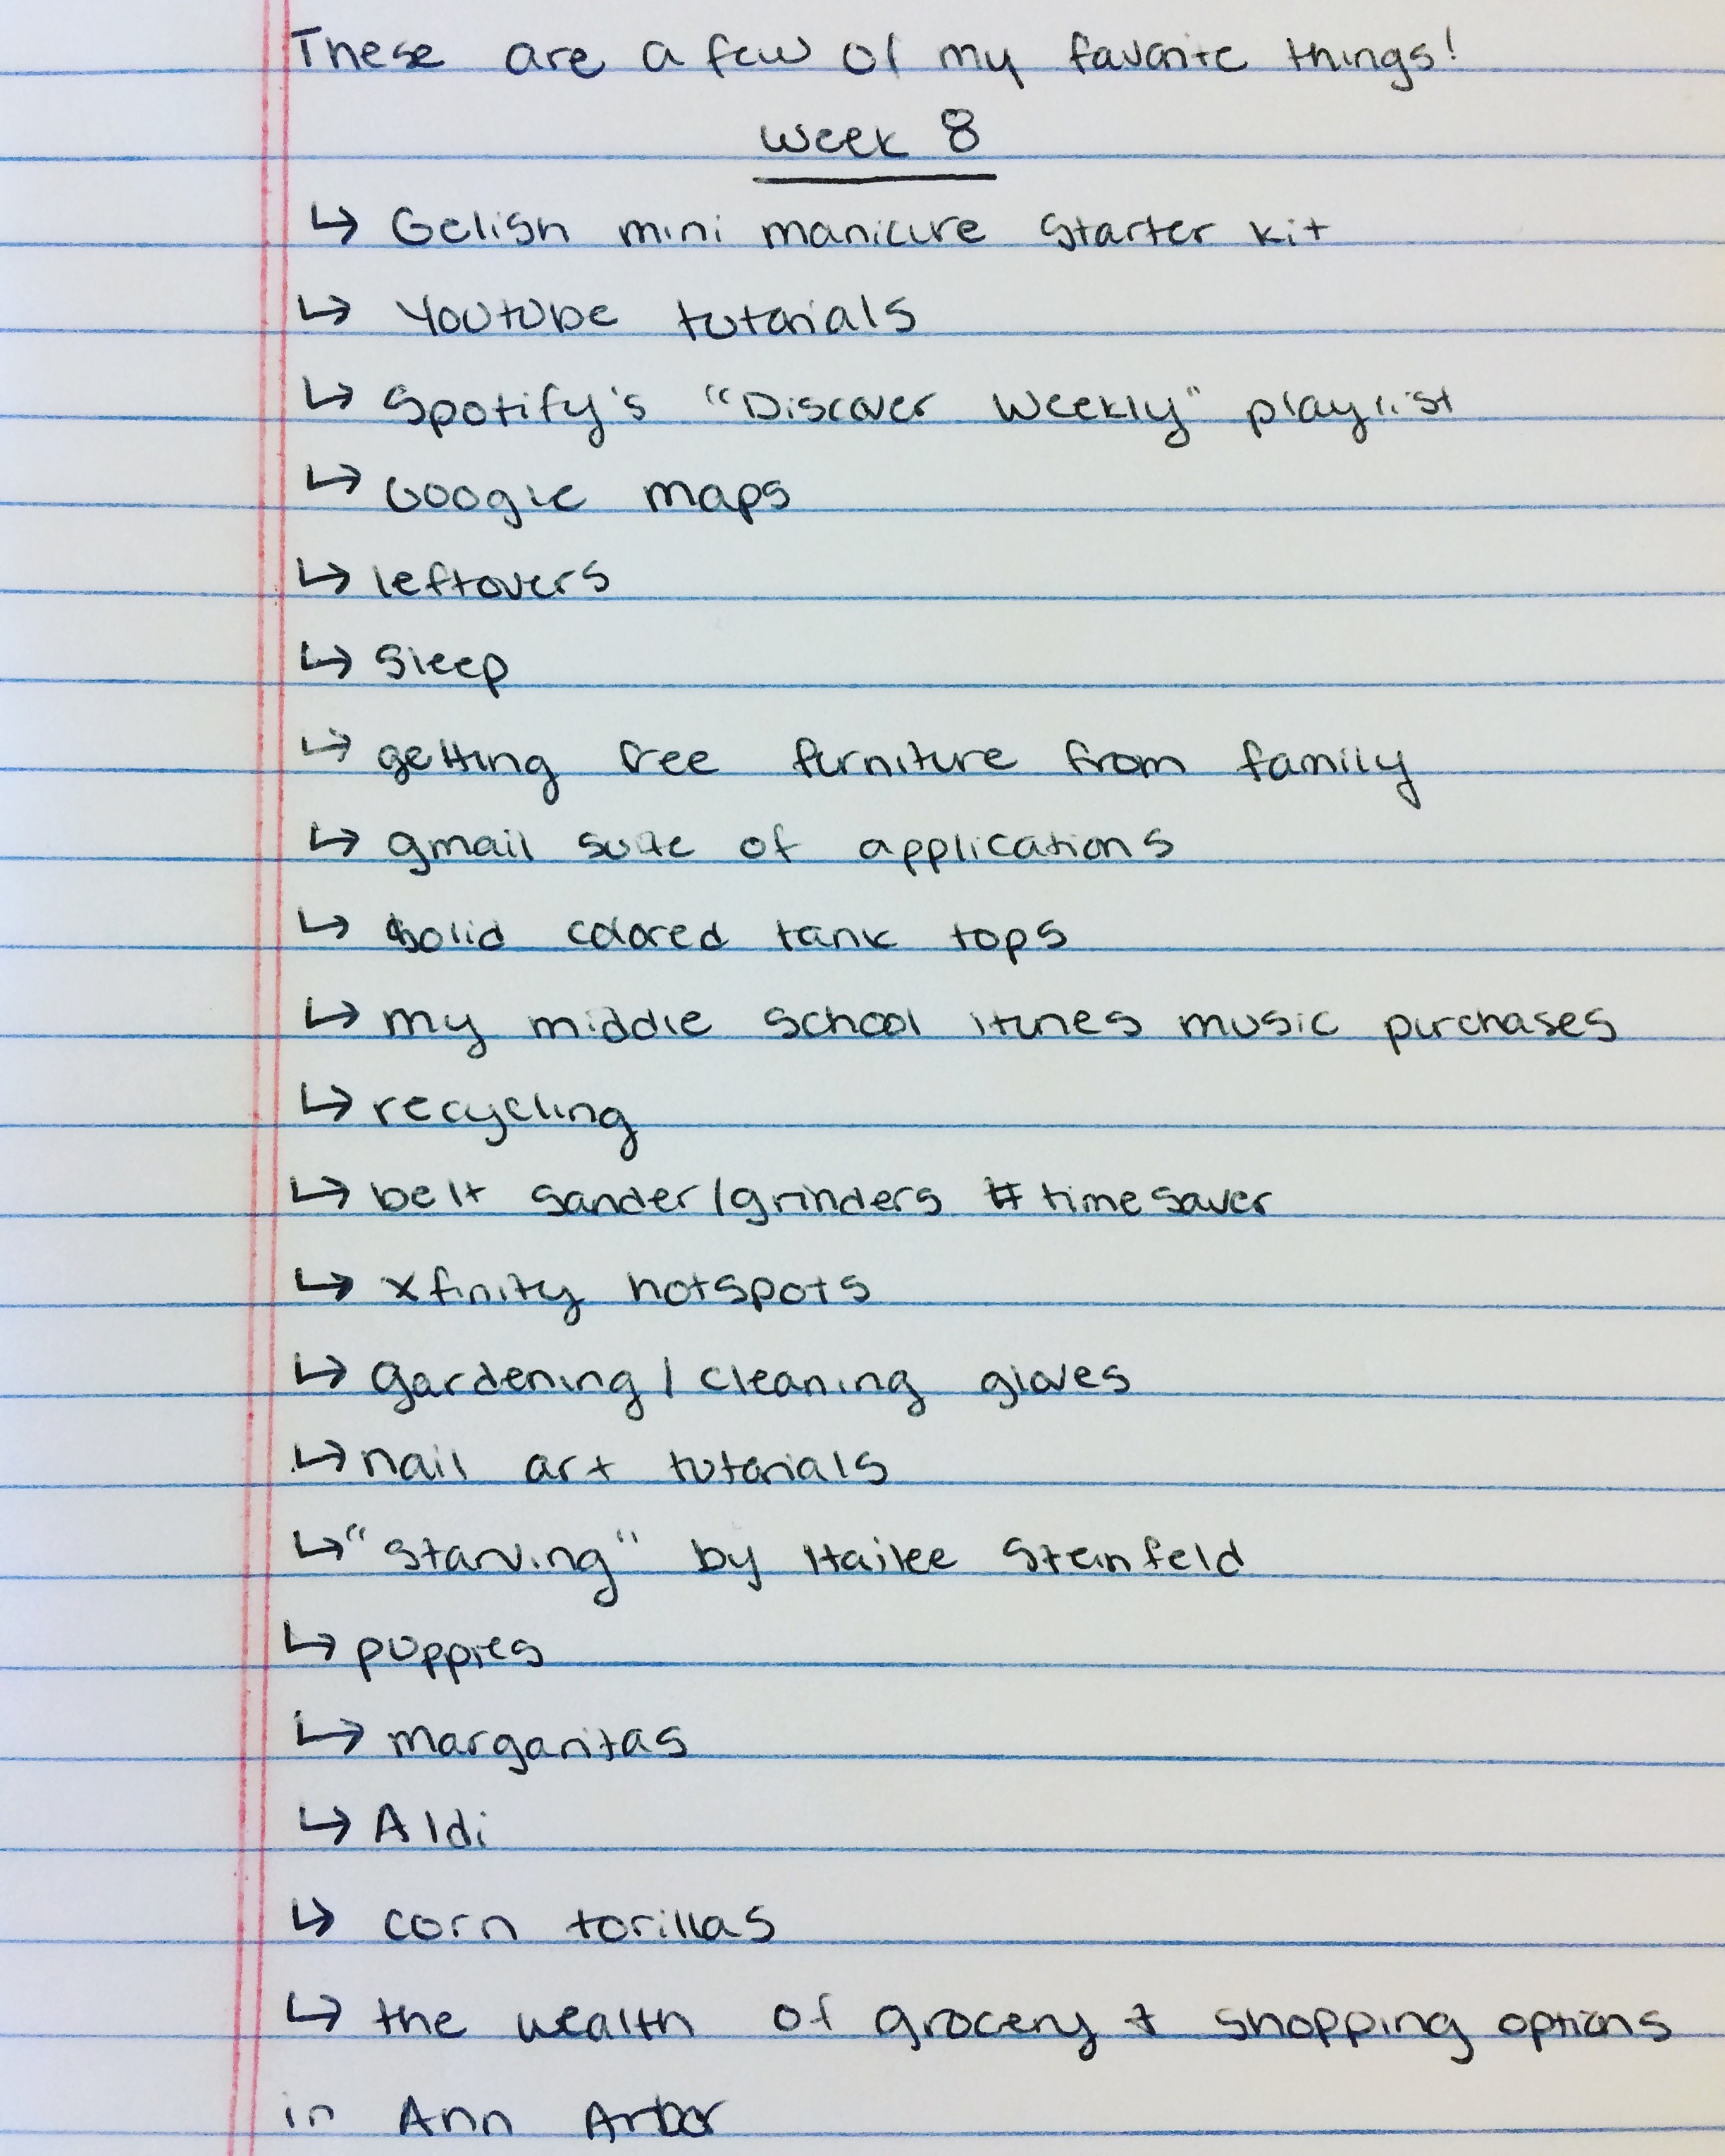 These are a few of my favorite things!
Week 8
↳ Gelish mini manicure starter kit
↳ Youtube tutorials
↳ Spotify's "Discover Weekly" playlist
↳ Google maps
↳ leftovers
↳ Sleep
↳ getting free furniture from family
↳ gmail suite of applications
↳ Solid colored tank tops
↳ my middle school itunes music purchases
↳ recycling
↳ belt sander/grinders #timesaver
↳ xfinity hotspots
↳ gardening/cleaning gloves
↳ nail art tutorials
↳ "Starving" by Hailee Steinfeld
↳ puppies
↳ margaritas
↳ Aldi
↳ corn torillas
↳ the wealth of grocery + shopping options
in Ann Arbor